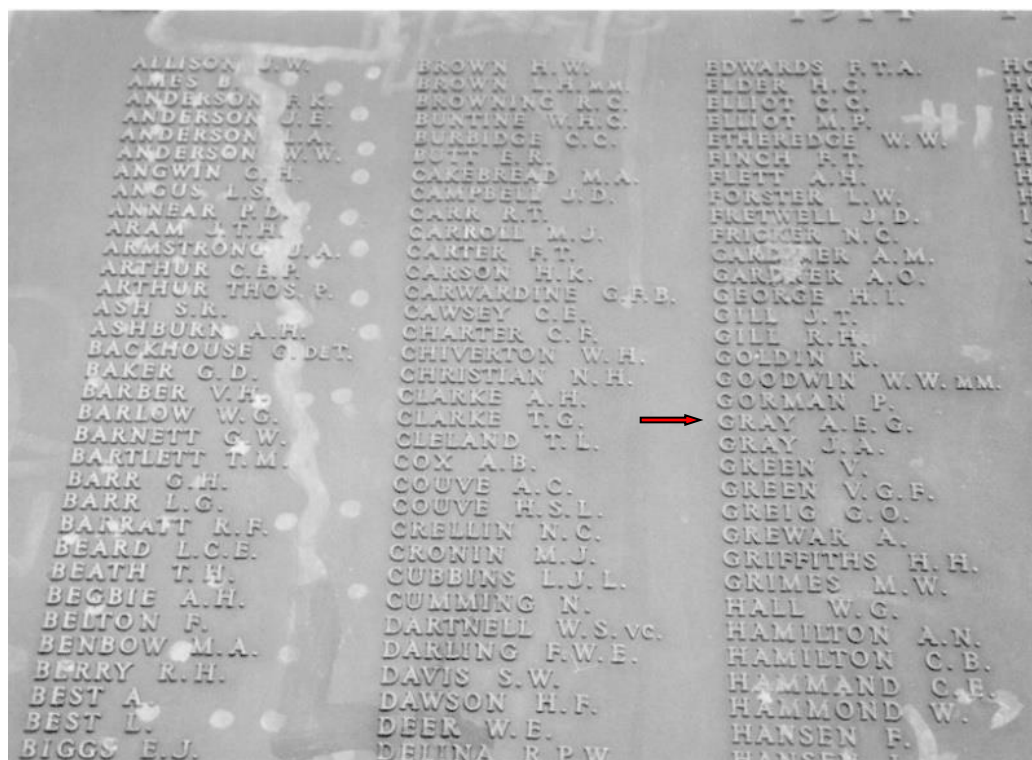 1914
ALLISON J.W.
AMES B.
ANDERSON F.K.
ANDERSON J.E.
ANDERSON L.A.
ANDERSON W.W.
ANGWIN G.H.
ANGUS L.S.
ANNEAR P.D.
ARAM J.T.H.
ARMSTRONG J.A.
ARTHUR C.E.P.
ARTHUR THOS. P.
ASH S.R.
ASHBURN A.H.
BACKHOUSE G.DET.
BAKER G.D.
BARBER V.H.
BARLOW W.G.
BARNETT G.W.
BARTLETT T.M.
BARR G.H.
BARR L.G.
BARRATT R.F.
BEARD L.C.E.
BEATH T.H.
BEGBIE A.H.
BELTON F.
BENBOW M.A.
BERRY R.H.
BEST A.
BEST L.
BIGGS E.J.
BROWN H.W.
BROWN L.H. MM.
BROWNING R.C.
BUNTINE W.H.C.
BURBIDGE C.C.
BUTT E.R.
CAKEBREAD M.A.
CAMPBELL J.D.
CARR R.T.
CARROLL M.J.
CARTER F.T.
CARSON H.K.
CARWARDINE G.F.B.
CAWSEY C.E.
CHARTER C.F.
CHIVERTON W.H.
CHRISTIAN N.H.
CLARKE A.H.
CLARKE T.G.
CLELAND T.L.
COX A.B.
COUVE A.C.
COUVE H.S.L.
CRELLIN N.C.
CRONIN M.J.
CUBBINS L.J.L.
CUMMING N.
DARTNELL W.S. VC.
DARLING F.W.E.
DAVIS S.W.
DAWSON H.F.
DEER W.E.
DELINA R.P.W.
EDWARDS F.T.A.
ELDER H.G.
ELLIOT C.C.
ELLIOT M.P.
ETHEREDGE W.W.
FINCH F.T.
FLETT A.H.
FORSTER L.W.
FRETWELL J.D.
FRICKER N.C.
GARDINER A.M.
GARDNER A.O.
GEORGE H.I.
GILL J.T.
GILL R.H.
GOLDIN R.
GOODWIN W.W. MM.
GORMAN P.
GRAY A.E.G.
GRAY J.A.
GREEN V.
GREEN V.G.F.
GREIG G.O.
GREWAR A.
GRIFFITHS H.H.
GRIMES M.W.
HALL W.G.
HAMILTON A.N.
HAMILTON C.B.
HAMMAND C.E.
HAMMOND W.
HANSEN F.
HANSEN